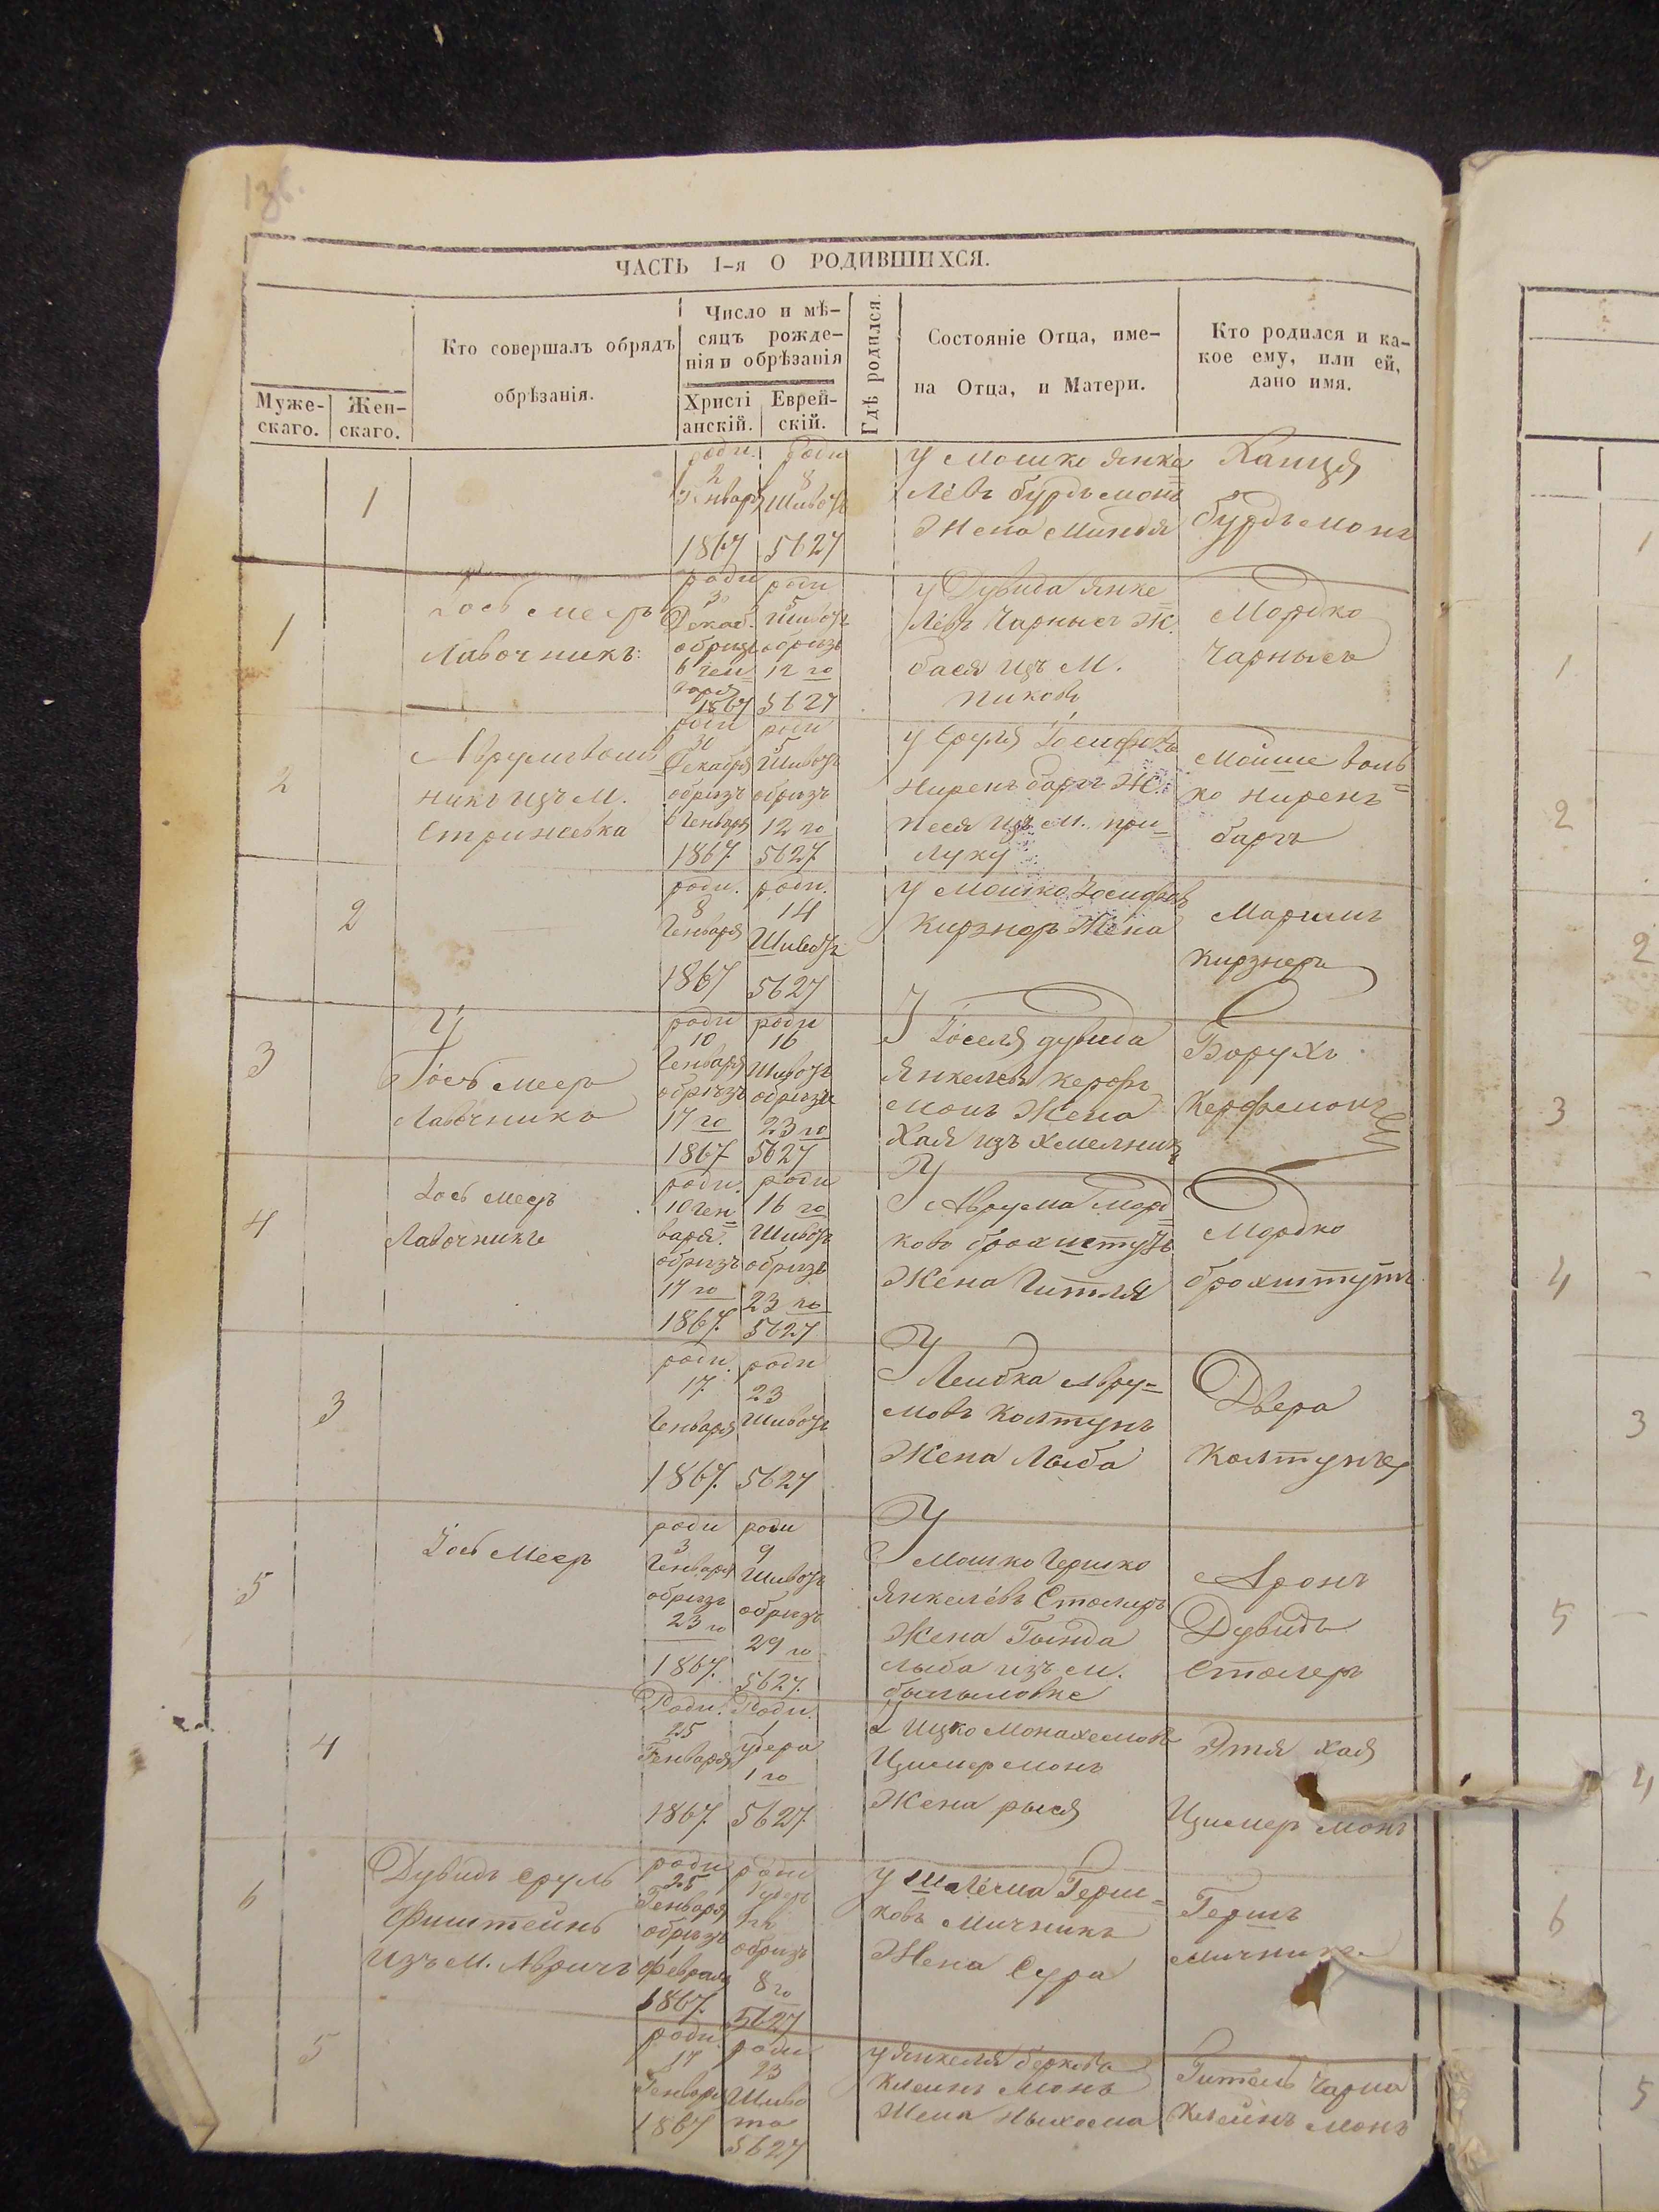 136.
ЧАСТЬ I-я О РОДИВШИХСЯ.
Муже-
скаго.
Жен-
скаго.
Кто совершалъ обрядъ
обрѣзанія.
Число и мѣ-
сяцъ рожде-
нія и обрѣзанія
Христі
анскій.
Еврей-
скій.
Гдѣ родился.
Состояніе Отца, име-
на Отца, и Матери.
Кто родился и ка-
кое ему, или ей,
дано имя.
1
роди.
2
Генваря
1867
роди
8
Шивотъ
5627
У Мошко Янке
левъ бурдъ монъ
Жена Миндля
Ханця
бурдъ монъ
1
Іось Мееръ
Лавочникъ:
роди
30
Декаб.
обризъ
6 Ген
варя
1867
роди
5
Шивотъ
обризъ
12 го
5627
У Дувида Янке
левъ Чарнысъ Ж.
бася изъ М.
Пиковъ
Мордко
Чарнысъ
2
Аврумъ воль
никъ изъ М.
Стрижевка
роди
30
Декабря
обризъ
6 Генваря
1867
роди
5
Шивотъ
обризъ
12 го
5627
У Сруля Іосифовъ
Ниренъ баргъ Ж.
Песя изъ М. при
луку
Мойше воль
ко Ниренъ
баргъ
2
роди.
8
Генваря
1867
роди.
14
Шивотъ
5627
У Мошко Іосифовъ
Кирзнеръ Жена
Маримъ
Кирзнеръ
3
Іось Мееръ
Лавочникъ
роди
10
Генваря
обризъ
17 го
1867
роди
16
Шивотъ
обризъ
23 го
5627
У Іоселя дувида
Янкелевъ Керфъ
монъ Жена
Хая изъ Хмелникъ
Борухъ
Керфъ монъ
4
Іось Мееръ
Лавочникъ
роди.
10 Ген
варя.
обризъ
17 го
1867.
роди
16 го
Шивотъ
обризъ
23 го
5627
У Аврума Морд
ково брохштутъ
Жена Гитля
Мордко
брохштутъ
3
роди.
17
Генваря
1867.
роди
23
Шивотъ
5627
У Лейбка Авру-
мовъ Колтунъ
Жена Лыба
Двера
Колтунъ
5
Іось Меер
роди
3
Генваря
обризъ
23 го
1867.
роди
9
Шивотъ
обризъ
29 го
5627.
У Мошко Гершко
Янкелевъ Столеръ
Жена Гында
лыба изъ М.
Аронъ
Дувидъ
Столеръ
4
Роди.
25
Генваря
1867.
Роди.
1
удера
1 го
5627.
У Ицко Монахемовъ
Цимермонъ
Жена рыся
Этя Хая
Цимеръ монъ
6
Дувидъ Сруль
Фиштейнъ
изъ М.
роди
25
Генваря
обризъ
1
Февраля
1867.
роди
обризъ
8 го
5627
У Шлёма Герш
ковъ Мичникъ
Жена Сура
Гершъ
Мичникъ
5
роди
17
Генваря
1867
роди
23
Шиво
та
5627
У Янкеля берковъ
Клейнъ монъ
Жена Ныхома
Гитель Чарна
Клейнъ монъ
1
1
2
2
3
4
3
5
4
6
5